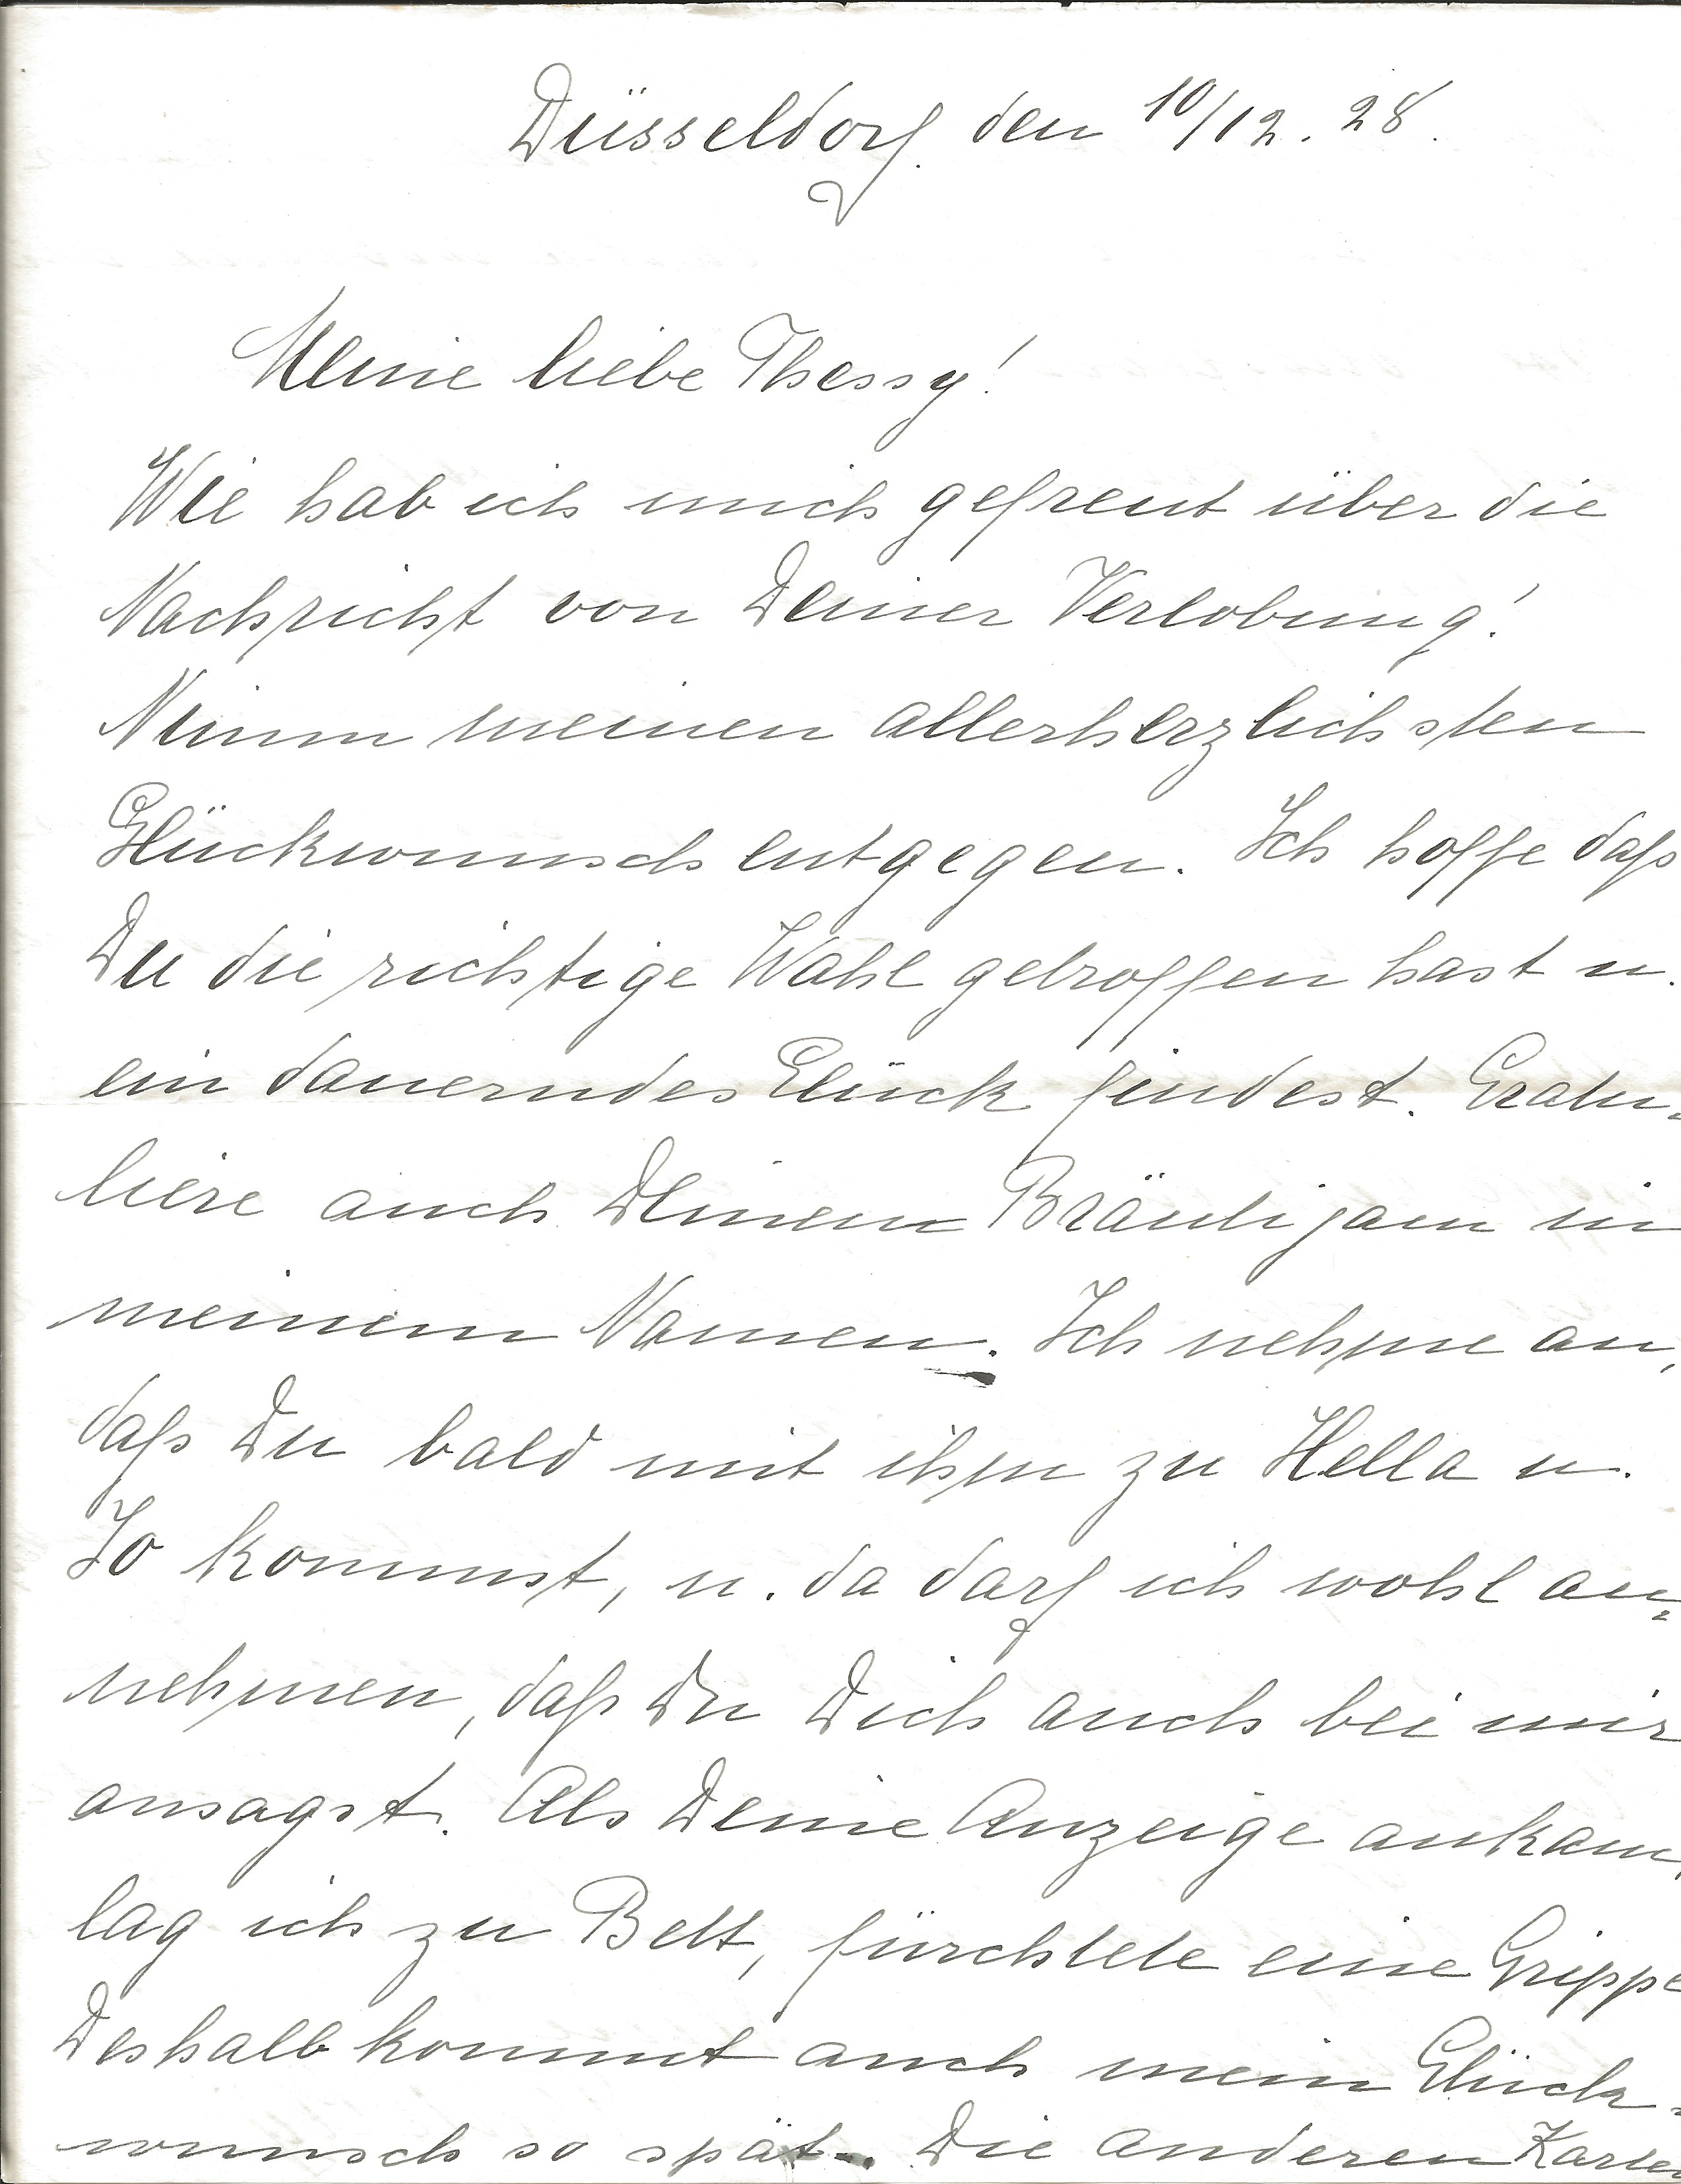 Düsseldorf, den 10/12. 28.
Meine liebe Thessy!
Wie hab ich mich gefreut über die
Nachricht von Deiner Verlobung!
Nimm meinen allerherzlichsten
Glückwunsch entgegen. Ich hoffe daß
Du die richtige Wahl getroffen hast u.
ein dauerndes Glück findest. Gratu-
liere auch Deinem Bräutijam in
meinem Namen. Ich nehme an,
daß Du bald mit ihm zu Hella u.
Jo kommst, u. da darf ich wohl an-
nehmen, daß Du Dich auch bei mir
ansagst. Als Deine Anzeige ankam,
lag ich zu Bett, fürchtete eine Grippe
Deshalb kommt auch mein Glück-
wunsch so spät. Die anderen Karten